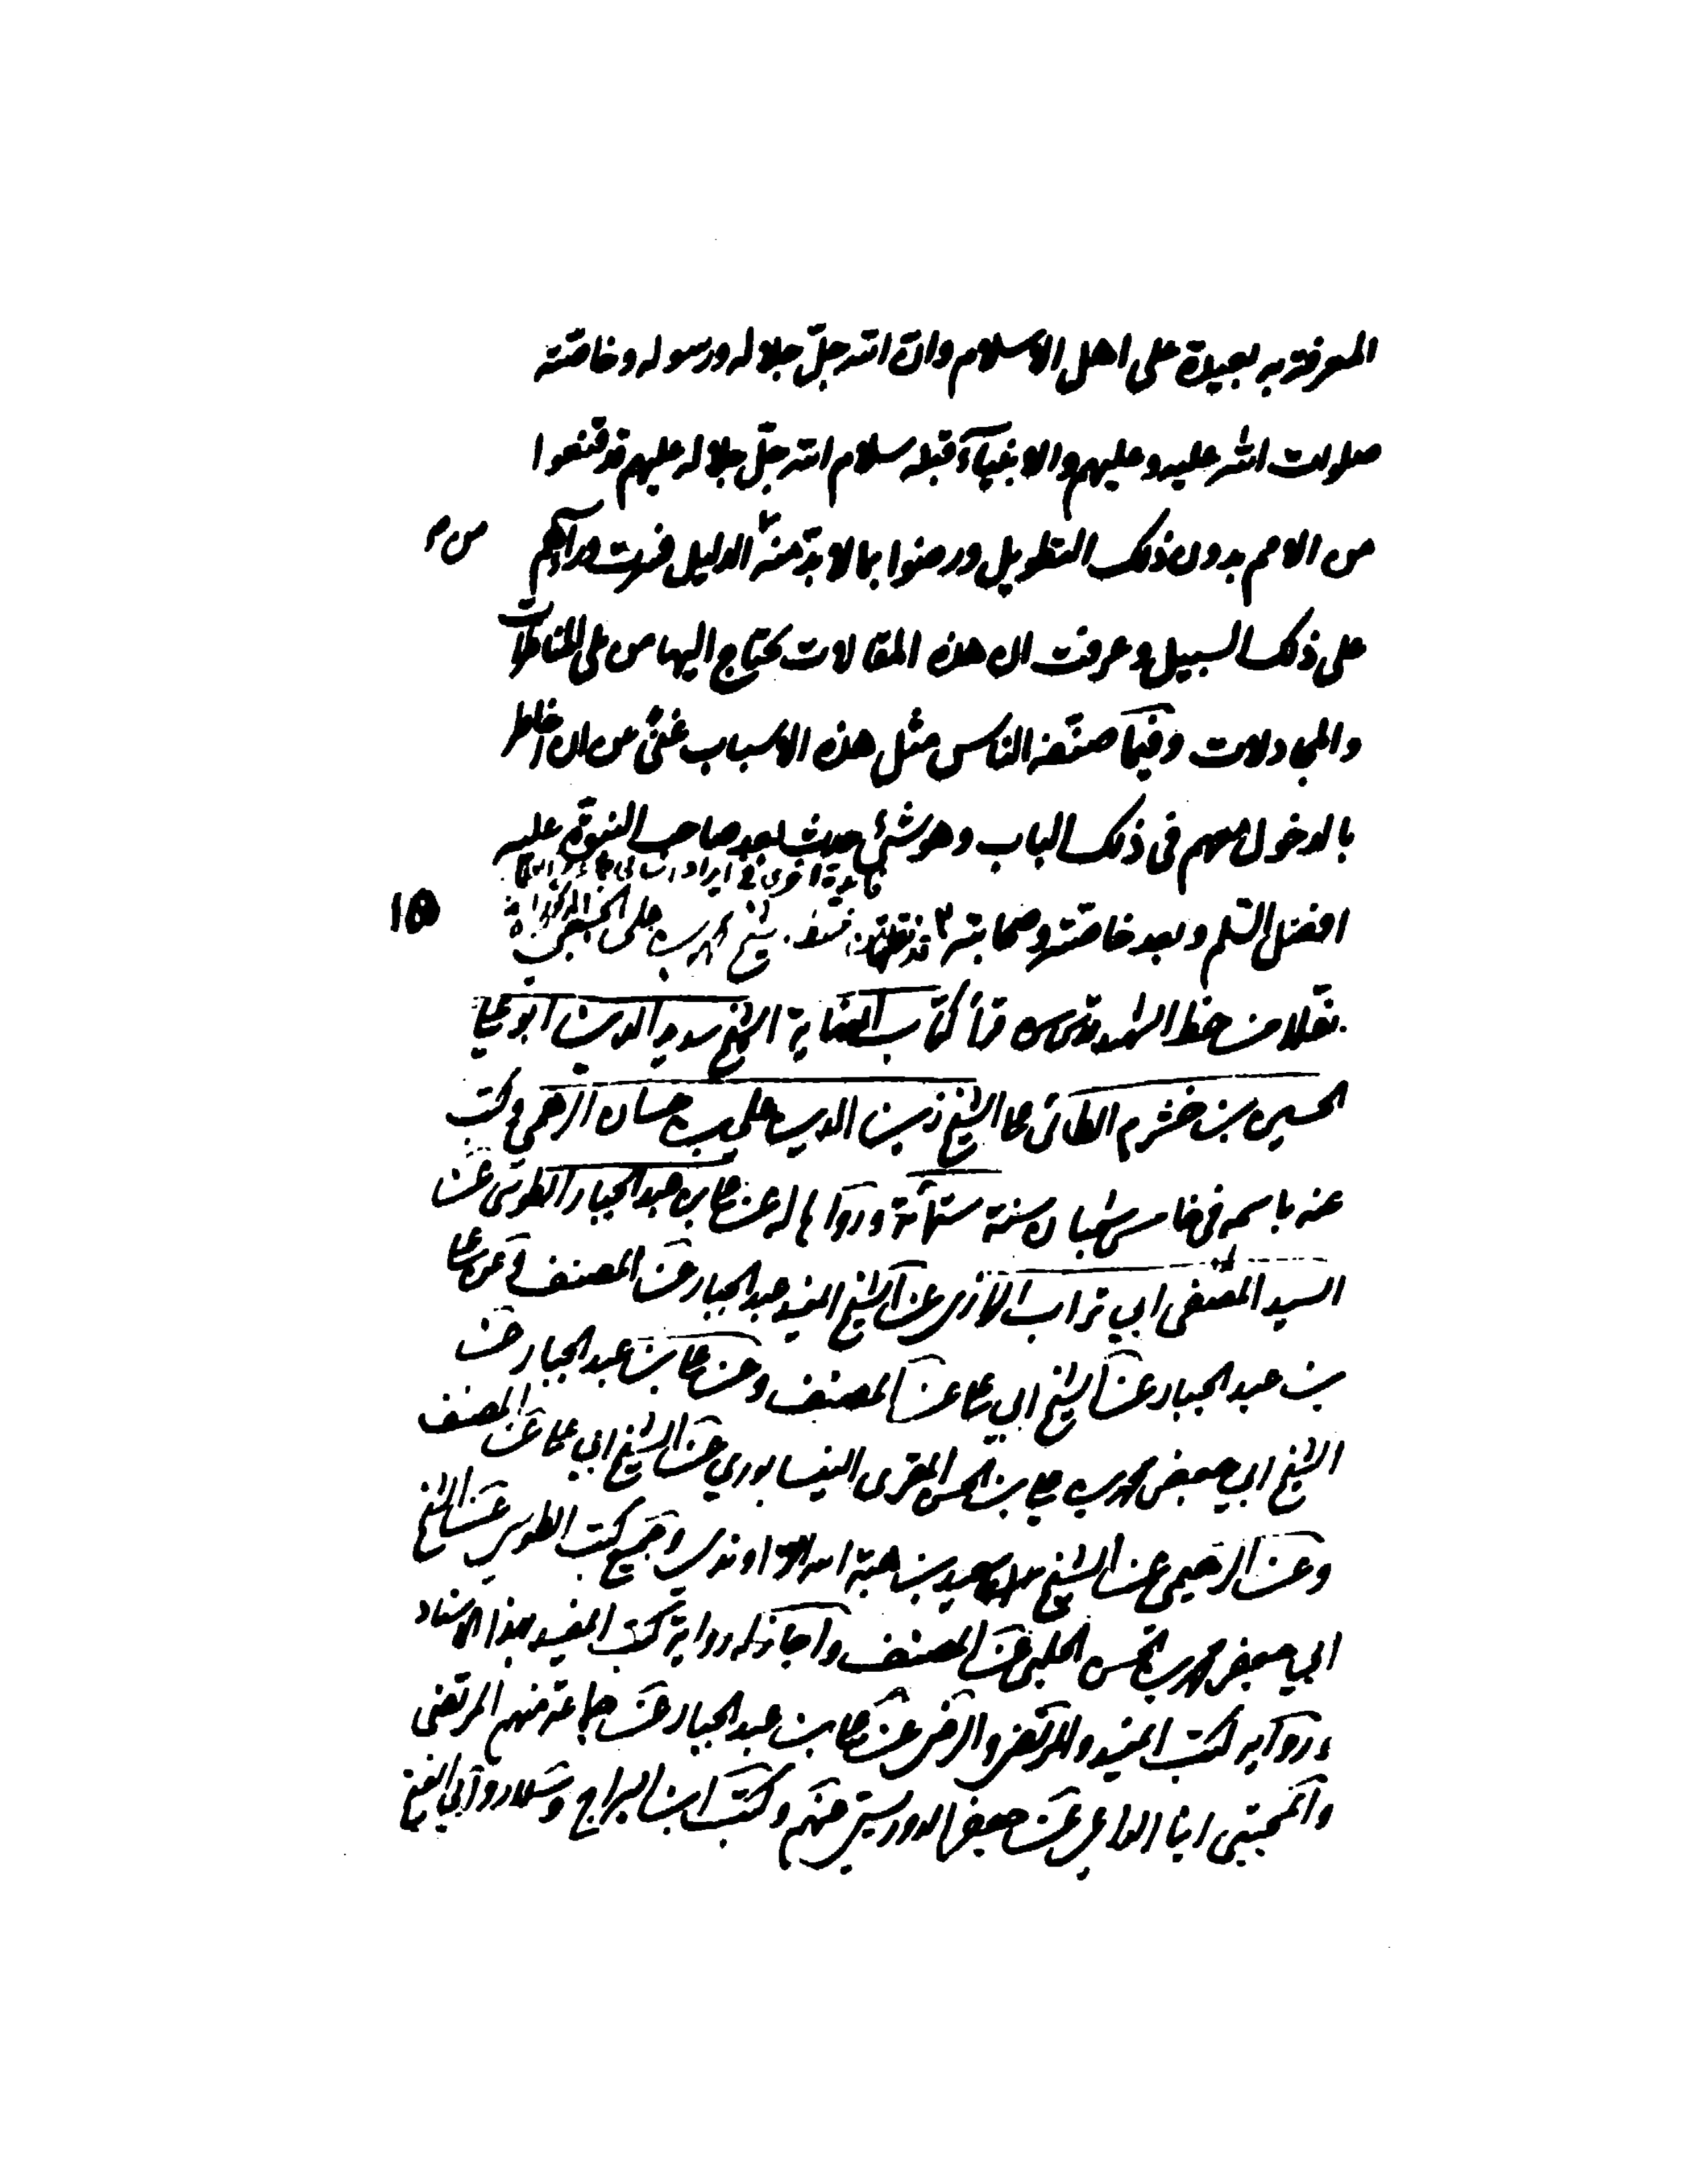 المعرفة به بعيدة على اهل الاسلام وان الله جل جلاله ورسوله وخاصته
صلوات الله عليه وعليهم والانبياء قبله سلام الله جل جلاله عليهم قد قنعوا
من الامم بدون ذلك التطويل ورضوا بما لا بد منه الدليل فسرت ورآءهم
على ذلك السبيل وعرفت ان هذه المقالات يحتاج اليها من يلي المناظرات
والمجادلات وفيما صنفه الناس مثل هذه الاسباب غنى من ان اخاطر
بالدخول معهم في ذلك الباب وهو شئ حدث بعد صاحب النبوة عليه
فايدة اخرى في ايراد
افضل السلم وبعد خاصته وصحابته الشيخ محمد بن علي الجبعي
نقلا من خط الشهيد قدس سره قرأ كتاب النهاية الشيخ سديد الدين ابو علي
الحسين بن خشرم الطائي على الشيخ زين الدين علي بن حسان الرهمي وكتب
عنه باسمه في خامس شعبان سنة ستمائة ورواها له عن علي بن عبد الجبار الطوسي عن
السيد المصطفى ابي تراب الرازي عن الشيخ المفيد عبد الجبار عن المصنف وعن علي
بن عبد الجبار عن الشيخ ابي علي عن المصنف وعن علي بن عبد الجبار عن
الشيخ ابي جعفر محمد بن علي بن الحسن المقري النيسابوري عن الشيخ ابي علي عن المصنف
وعن الرهيمي عن الشيخ سعيد بن هبة الله الراوندي وجميع كتب الطوسي عن الشيخ
ابي جعفر محمد بن الحسن الحلبي عن المصنف واجاز له رواية كتب المفيد بهذا الاسناد
ورواية كتب المفيد والمرتضى والرضي عن علي بن عبد الجبار عن جماعة منهم المرتضى
والمجتبى ابنا الداعي عن جعفر الدوريستي عنهم وكتب ابن البراج وسلار وابي الفتح